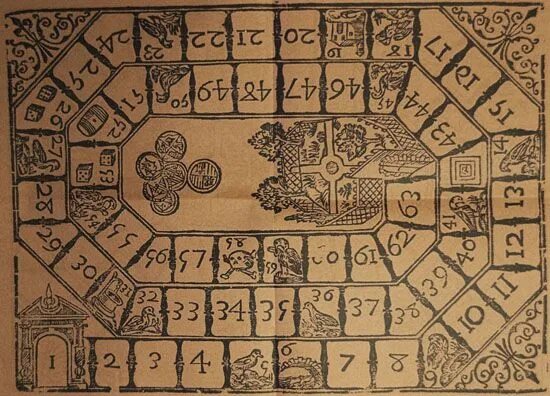 1 2 3 4 5 6 7 8 9
10 11 12 13 14 15 16 17
18 19 20 21 22 23
24 25 26 27 28 29 30
32 33 34 35 36 37 38
39 40 41 43 44
45 46 47 48 49 50
51 52 53 54 55
56 57 58 61 62 63